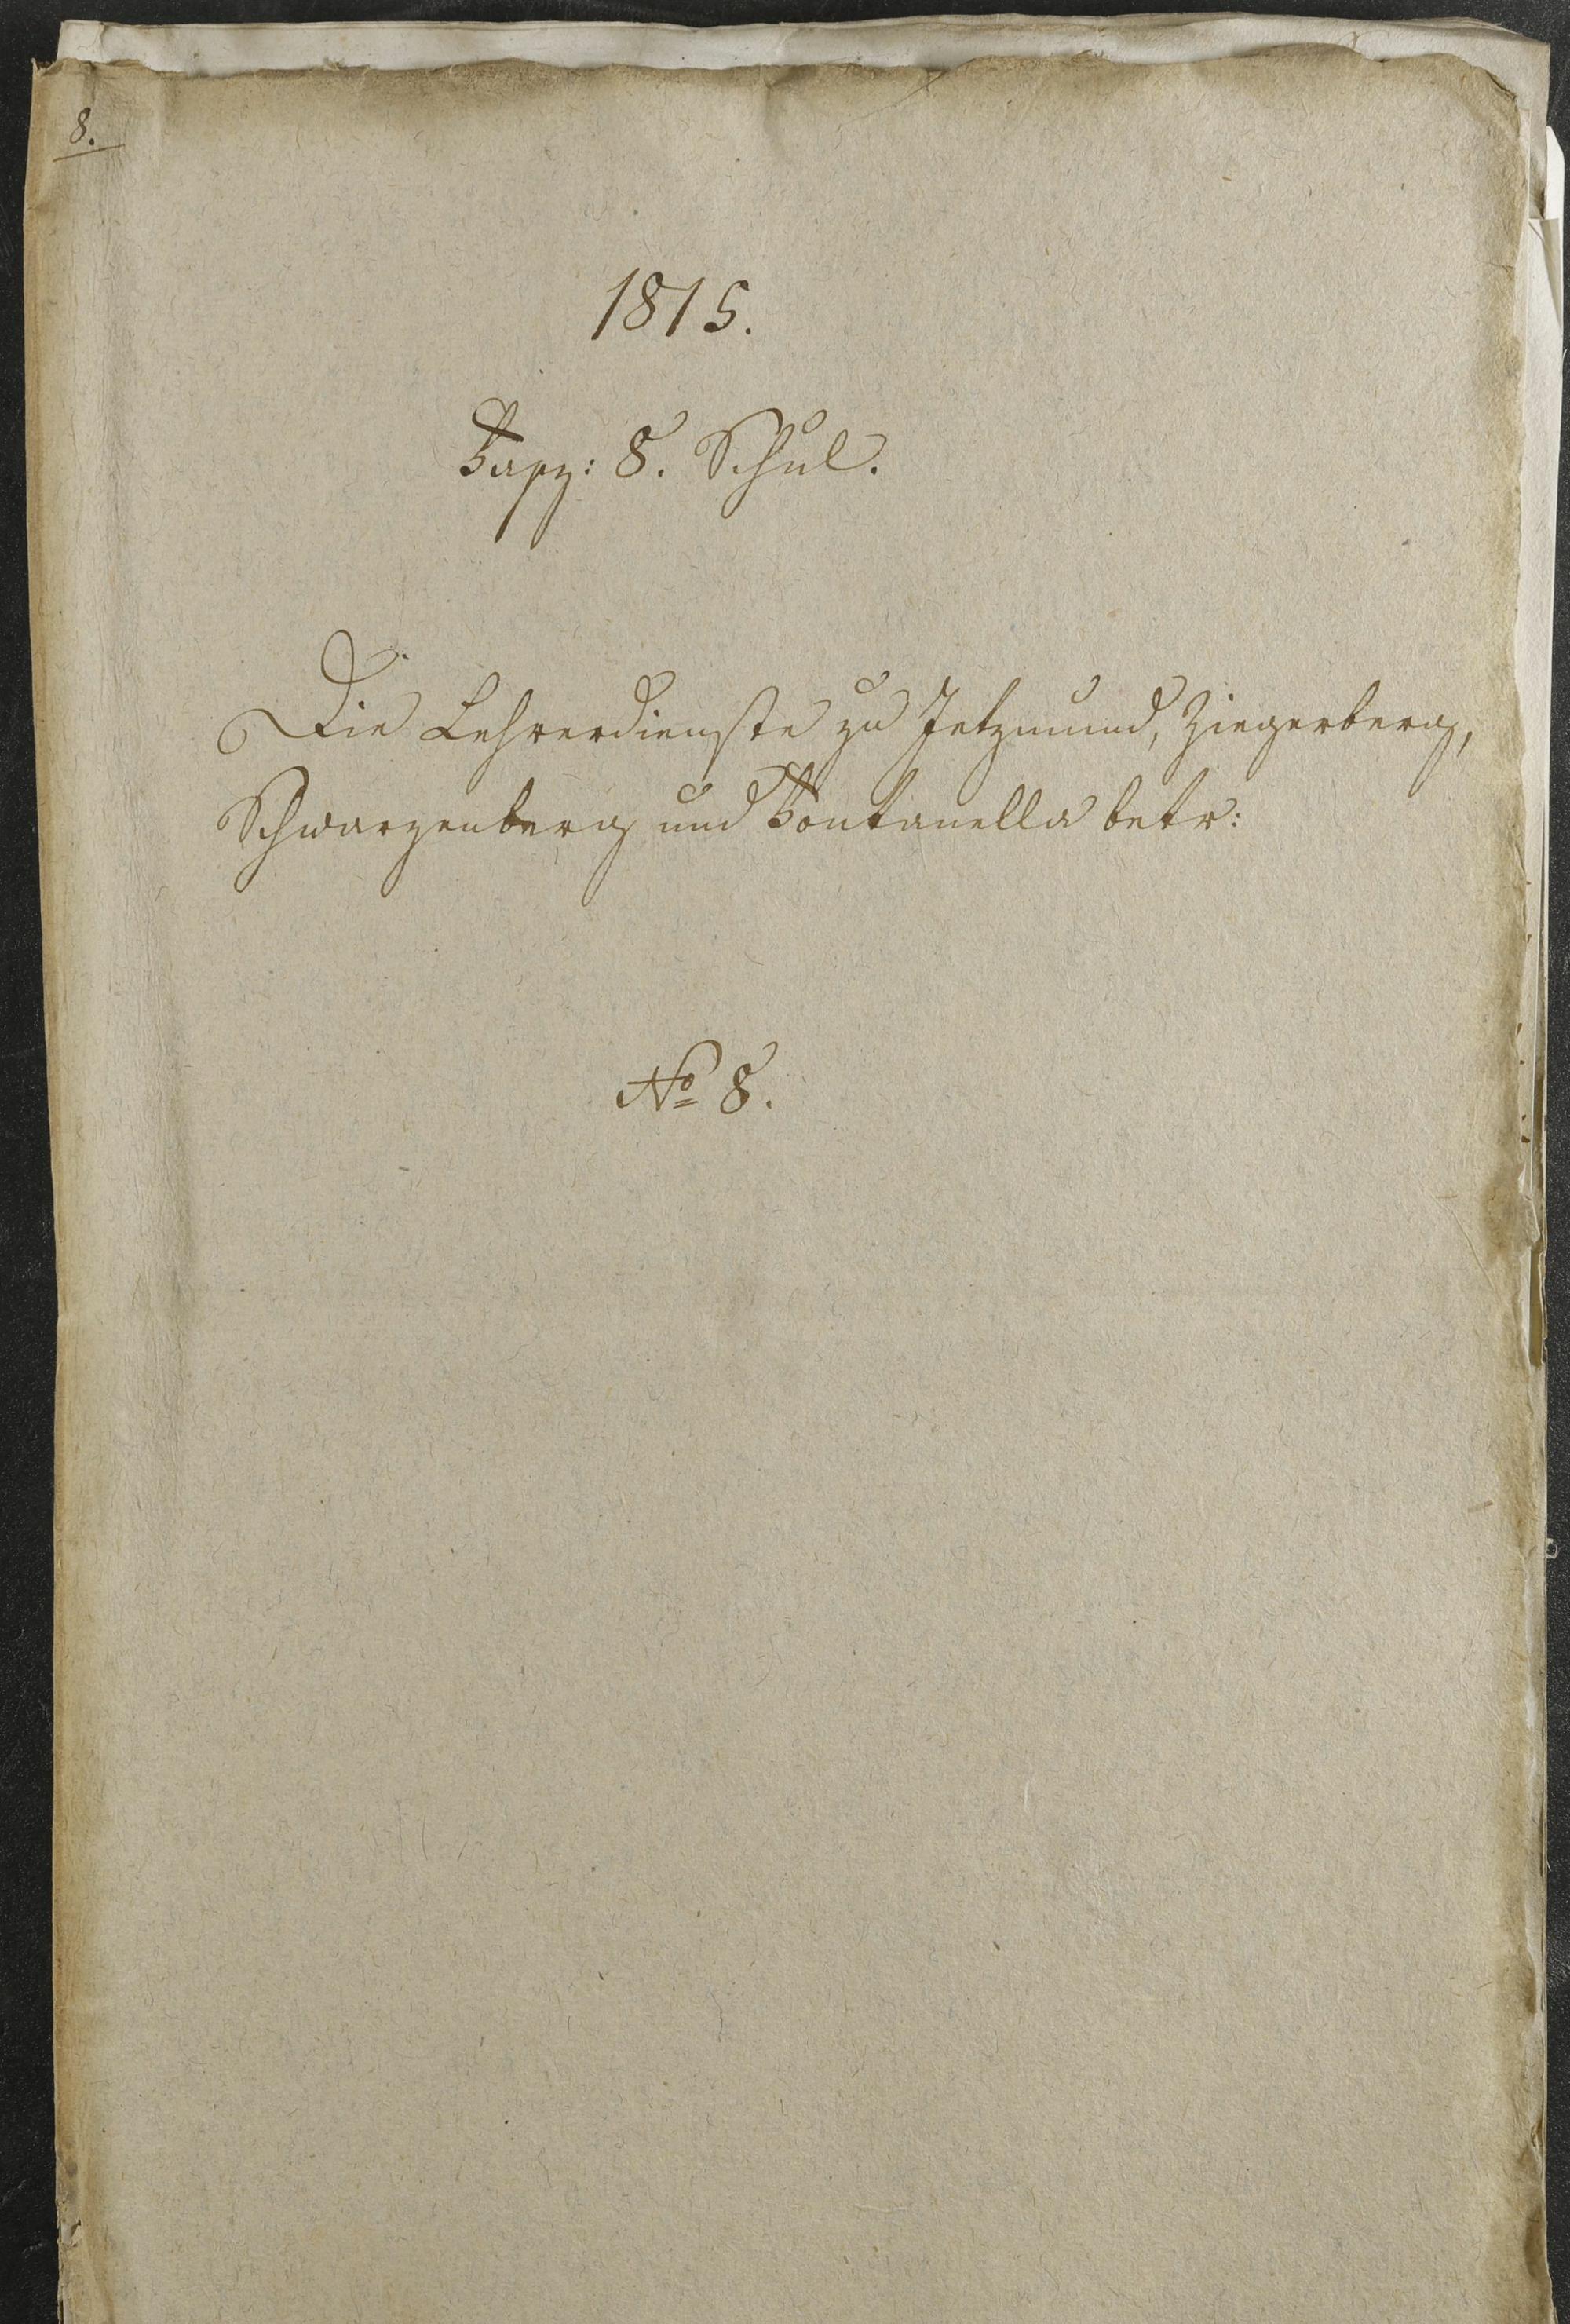 8.
1815.
Fasz: 8. Schul.
Die Lehrerdienste zu Jetzmund, Ziegerberg,
Schwarzenberg und Fontanella betr:
No 8.